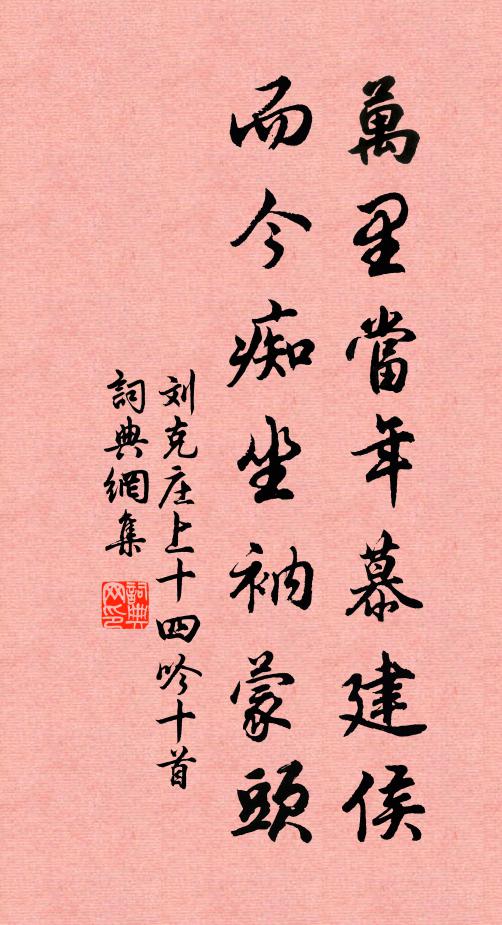 萬里當年慕建侯
而今痴坐衲蒙頭
刘克庄上十四吟十首
詞典網集
詞典网印